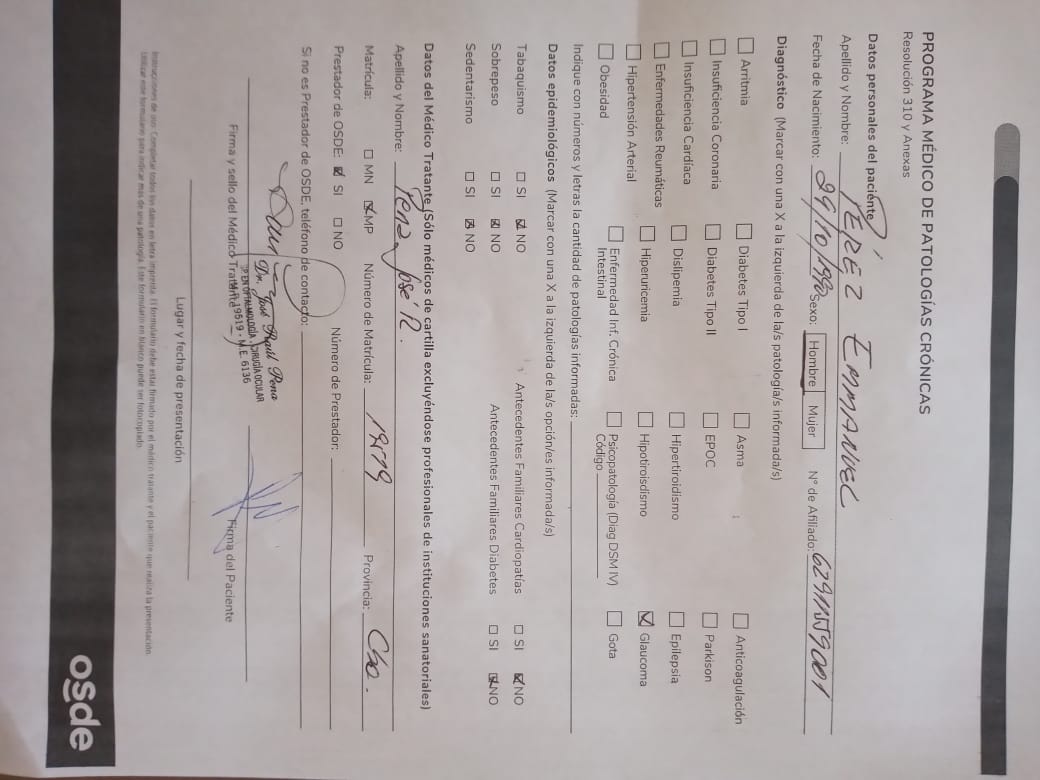 PROGRAMA MÉDICO DE PATOLOGÍAS CRÓNICAS
Resolución 310 y Anexas
Datos personales del paciente
Apellido y Nombre: PÉREZ EMMANUEL
Fecha de Nacimiento: 29/10/1980 Sexo: Hombre Mujer N° de Afiliado: 62911559001
Diagnóstico (Marcar con una X a la izquierda de la/s patología/s informada/s)
☐ Arritmia ☐ Diabetes Tipo I ☐ Asma ☐ Anticoagulación
☐ Insuficiencia Coronaria ☐ Diabetes Tipo II ☐ EPOC ☐ Parkison
☐ Insuficiencia Cardíaca ☐ Dislipemia ☐ Hipertiroidismo ☐ Epilepsia
☐ Enfermedades Reumáticas ☐ Hiperuricemia ☐ Hipotiroisdismo ☒ Glaucoma
☐ Hipertensión Arterial ☐ Enfermedad Inf. Crónica Intestinal ☐ Psicopatología (Diag DSM IV) Código ☐ Gota
☐ Obesidad
Indique con números y letras la cantidad de patologías informadas:
Datos epidemiológicos (Marcar con una X a la izquierda de la/s opción/es informada/s)
Tabaquismo ☐ SI ☒ NO Antecedentes Familiares Cardiopatías ☐ SI ☒ NO
Sobrepeso ☐ SI ☒ NO Antecedentes Familiares Diabetes ☐ SI ☒ NO
Sedentarismo ☐ SI ☒ NO
Datos del Médico Tratante (Sólo médicos de cartilla excluyéndose profesionales de instituciones sanatoriales)
Apellido y Nombre: Pena José R.
Matrícula: ☐ MN ☒ MP Número de Matrícula: 19519 Provincia: Cba.
Prestador de OSDE: ☒ SI ☐ NO Número de Prestador:
Si no es Prestador de OSDE, teléfono de contacto:
Dr. José Raúl Pena
ESP. EN OFTALMOLOGÍA CIRUGÍA OCULAR
M.P. 19519 - M.E. 6136
Firma y sello del Médico Tratante Firma del Paciente
Lugar y fecha de presentación
Instrucciones de uso: Completar todos los datos en letra imprenta. El formulario debe estar firmado por el médico tratante y el paciente que realiza la presentación.
Utilizar este formulario para indicar más de una patología. Este formulario en blanco puede ser fotocopiado.
osde